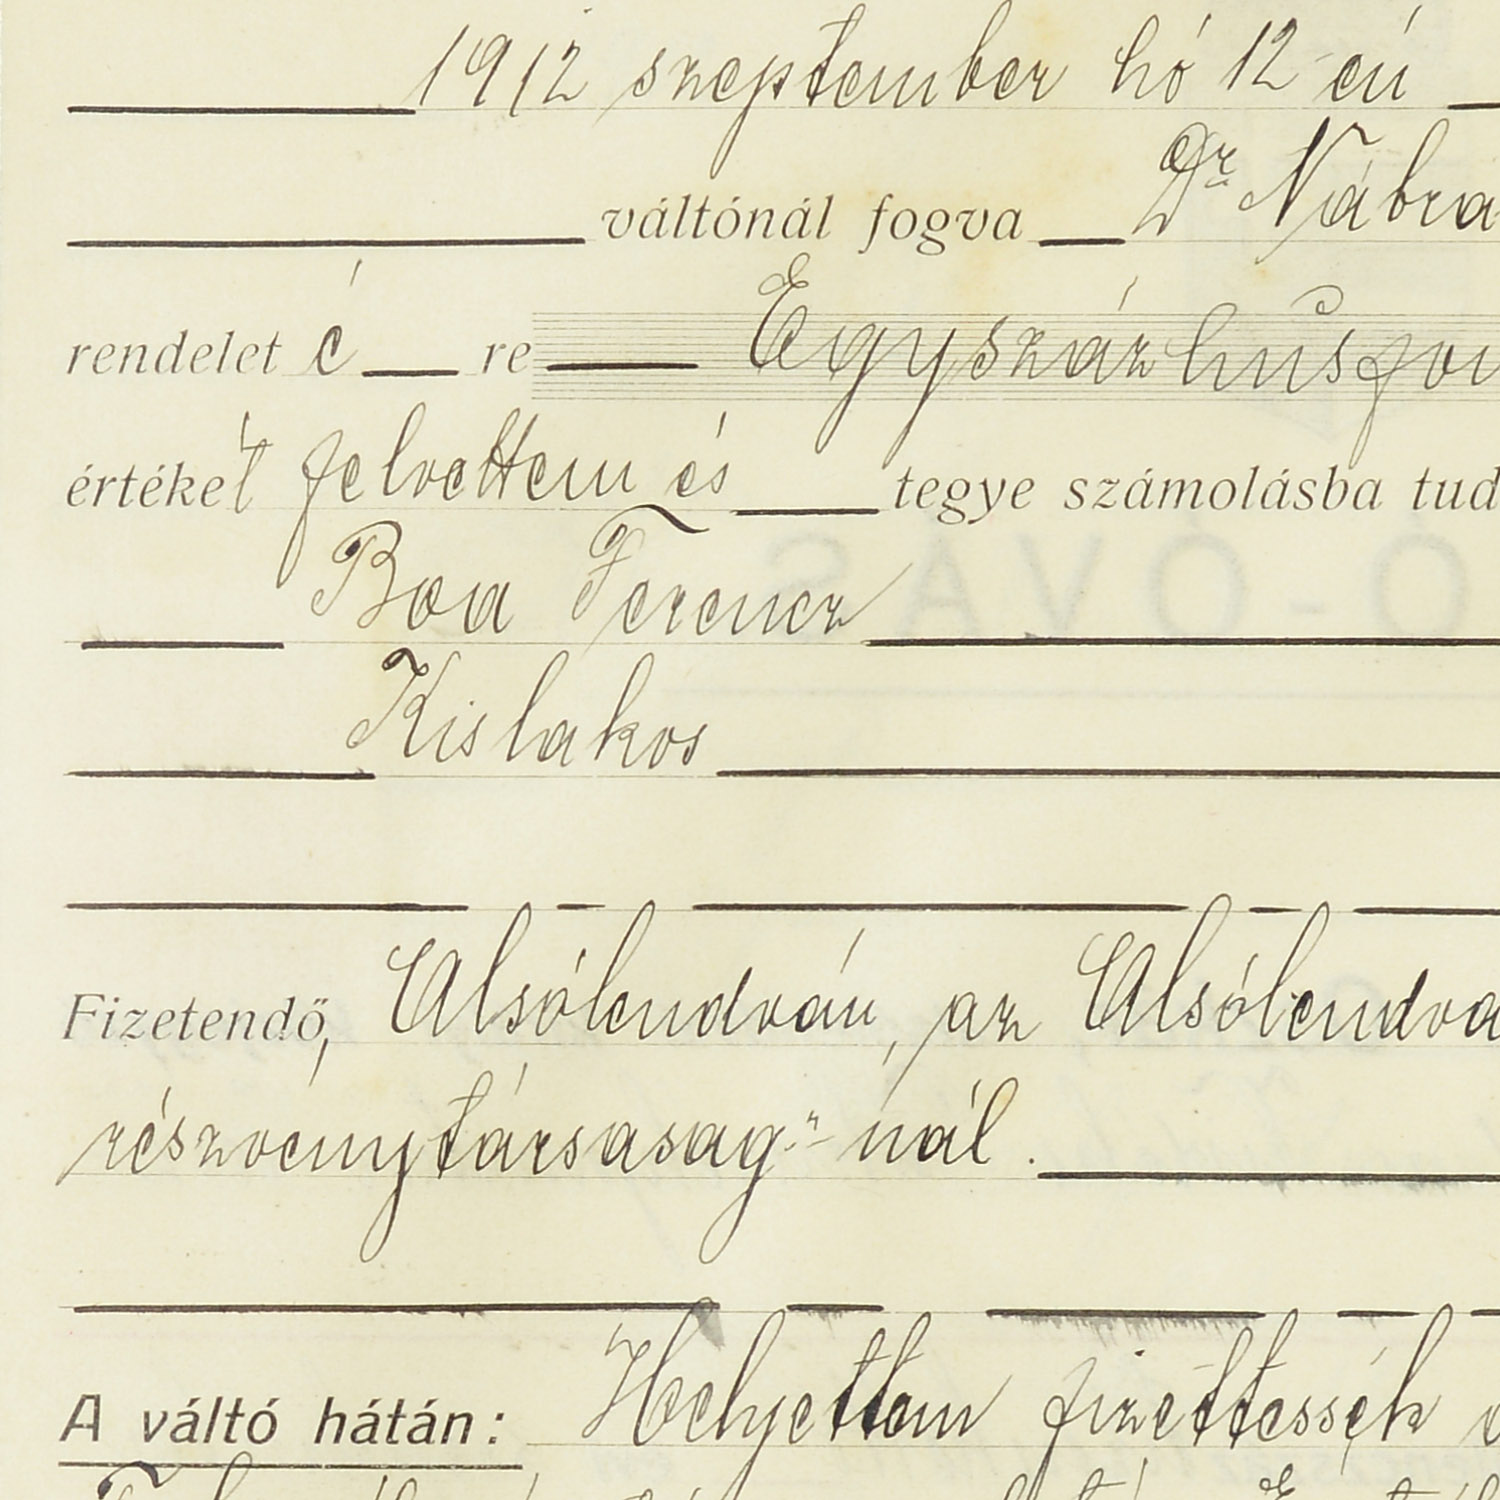 1912 szeptember hó 12-én
váltónál fogva Dr. Nábra
rendelet é re Egyszázhúsz
értéket felvettem és tegye számolásba tud
Boa Ferencz
Kislakos
Fizetendő, Alsólendván, az Alsólendva
részvénytársaság"-nál.
A váltó hátán: Helyettem fizettessék
Ó-ÓVÁS